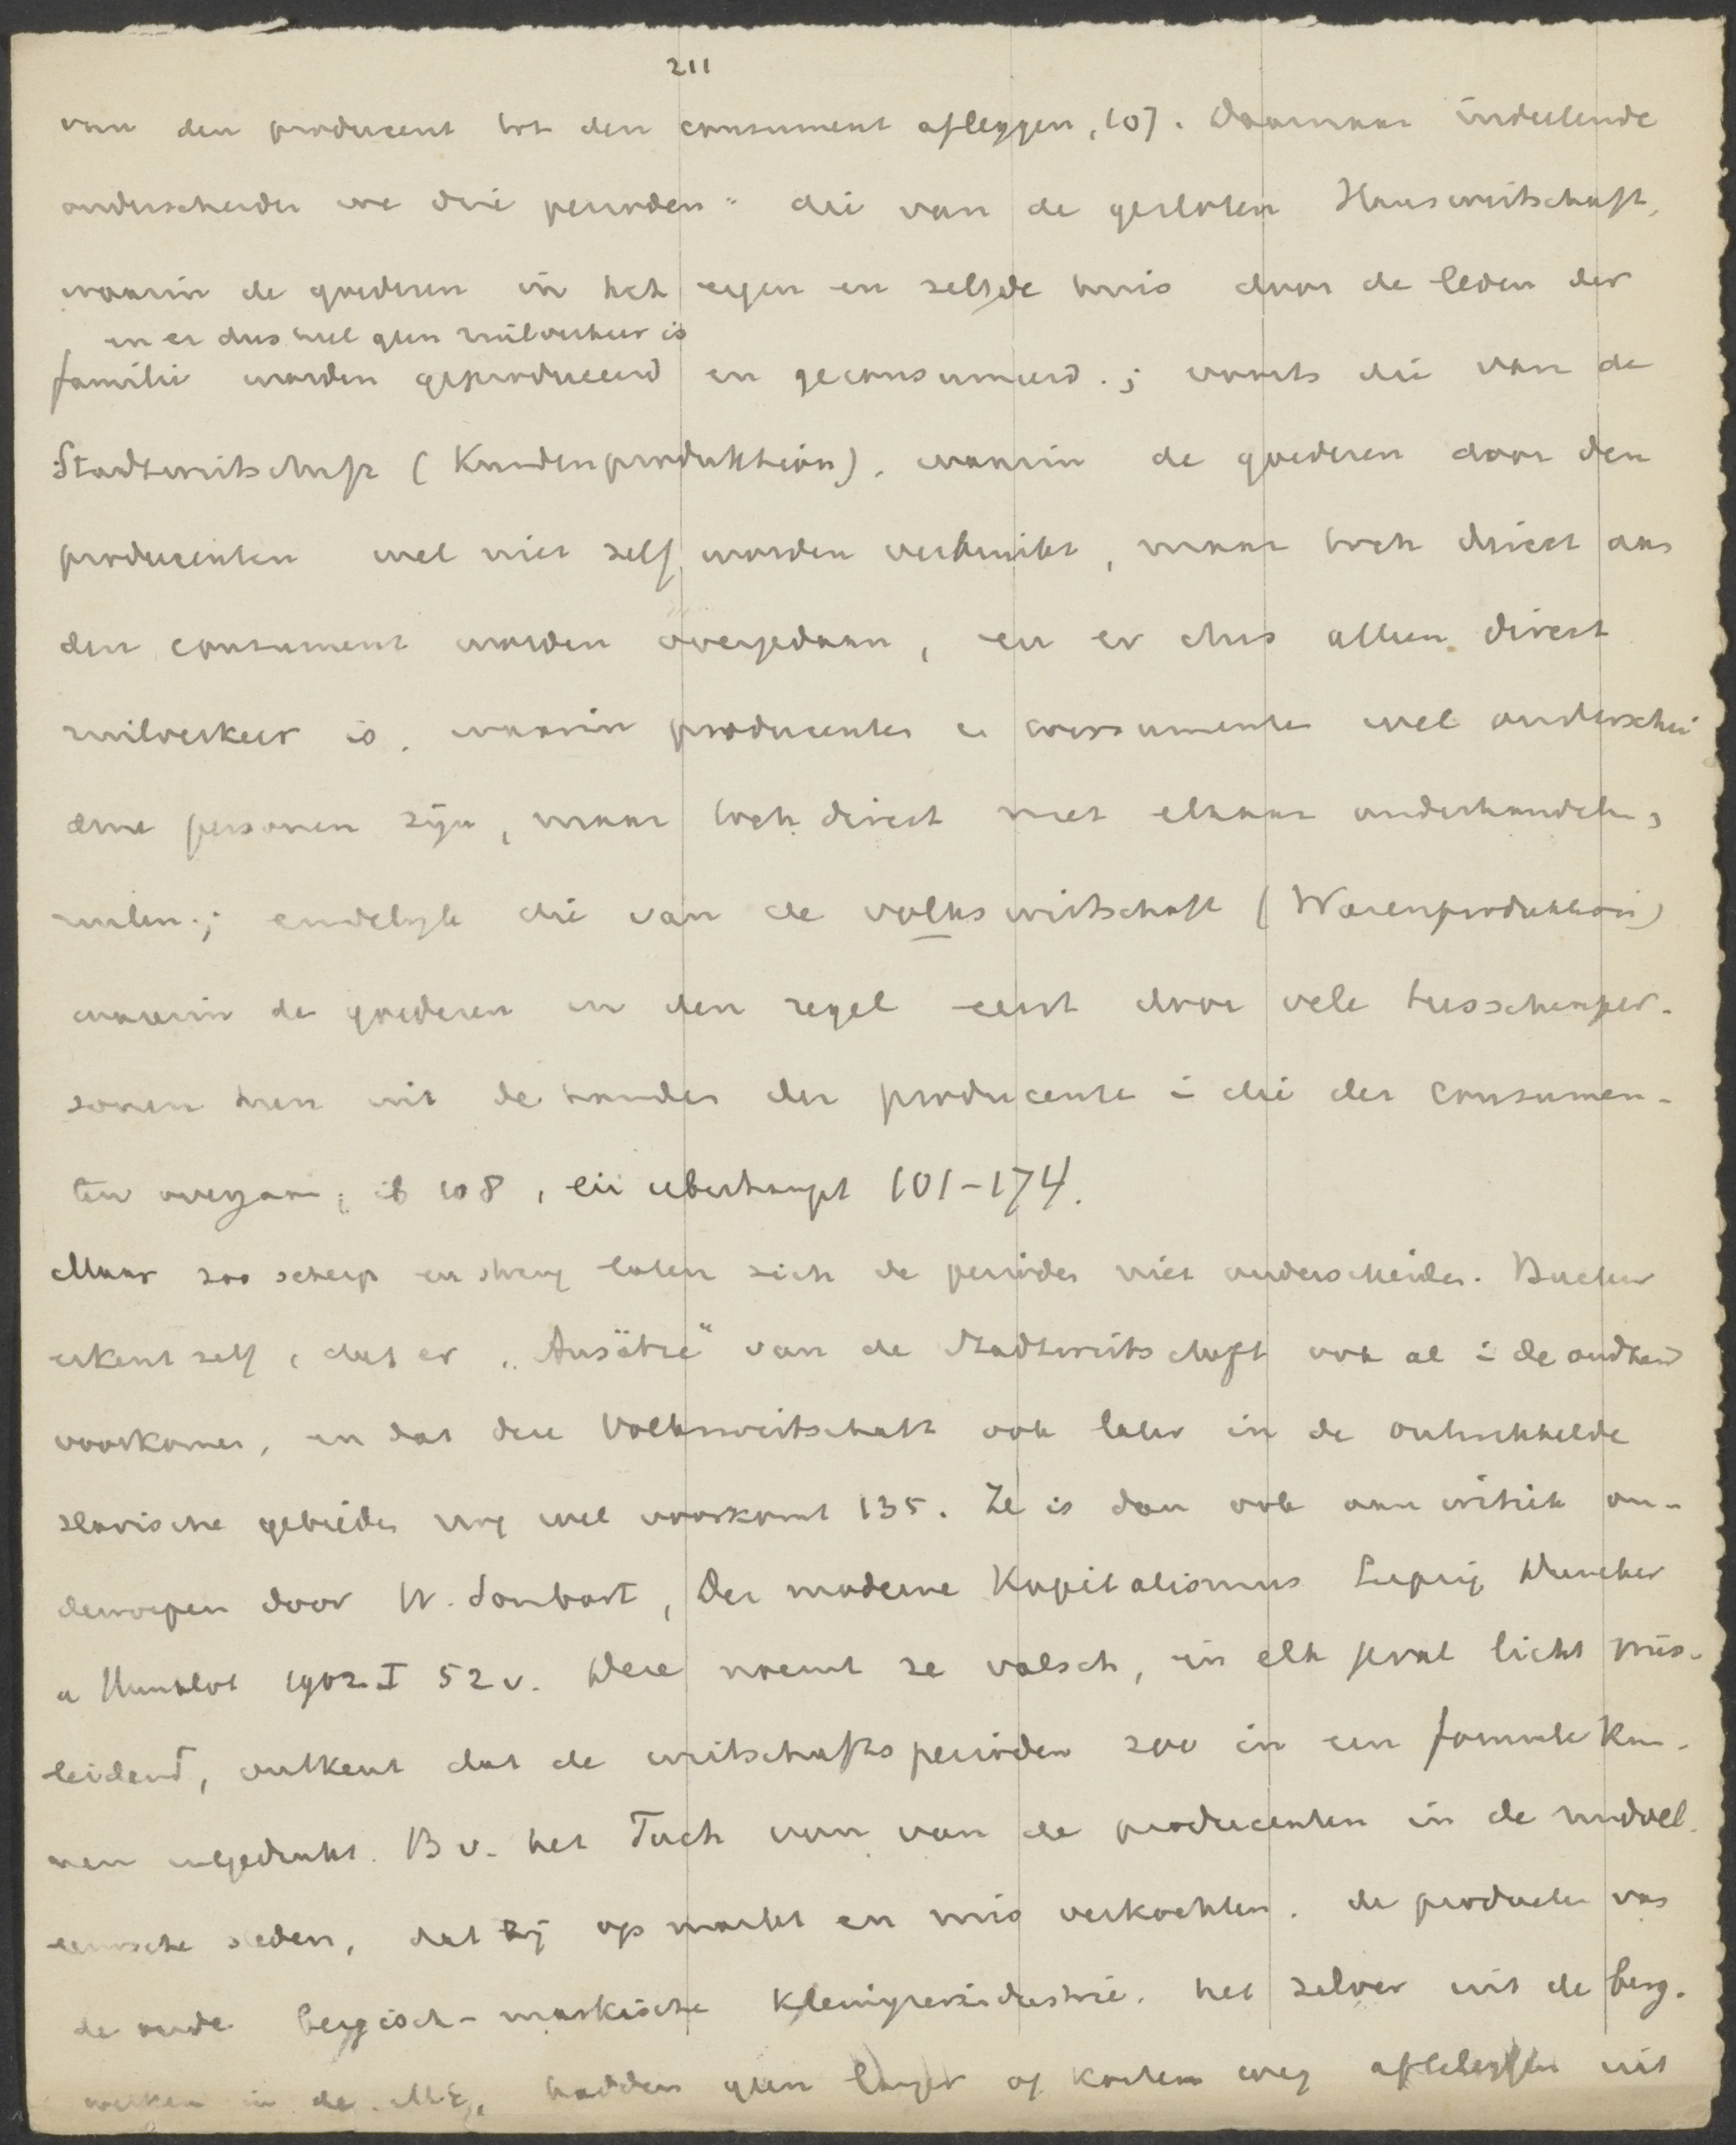 211
van den producent tot den consument afleggen, 107. Daarnaar indeelende
onderscheiden we drie perioden: die van de gesloten Hauswirtschaft,
waarin de goederen in het eigen en zelfde huis door de leden der
en er dus heel geen ruilverkeer is
familie worden geproduceerd en geconsumeerd.; voorts die van de
Stadtwirtschaft (Kundenproduktion), waarin de goederen door den
producenten wel niet zelf worden verbruikt, maar toch direct aan
den consument worden overgedaan, en er dus alleen direct
ruilverkeer is, waarin producenten en consumenten wel onderschei
dene personen zijn, maar toch direct met elkaar onderhandelen,
ruilen.; eindelijk die van de volkswirtschaft (Warenproduktion)
waarin de goederen in den regel eerst door vele tusschenper-
sonen heen uit de handen der producenten in die der consumen-
ten overgaan, ib 108, en überhaupt 101-174.
Maar zoo scherp en streng laten zich de perioden niet onderscheiden. Bucher
erkent zelf, dat er „Ansätze“ van de Stadtwirtschaft ook al in de oudheid
voorkomen, en dat die Volkswirtschaft ook later in de ontwikkelde
slavische gebieden nog wel voorkomt 135. Ze is dan ook aan critiek on-
derworpen door W. Sombart, Der moderne Kapitalismus Leipzig Duncker
u Humblot 1902 I 52 v. Deze noemt ze valsch, in elk geval licht mis-
leidend, ontkent dat de wirtschaftsperioden zoo in een formule kun-
nen uitgedrukt. Bv. het Tuch van van de producenten in de middel-
eeuwsche steden, dat zij op markt en mis verkochten, de producten van
de oude bergisch-markische Kleineisenindustrie, het zilver uit de berg-
werken in de ME, hadden geen langer of korter weg afteleggen uit